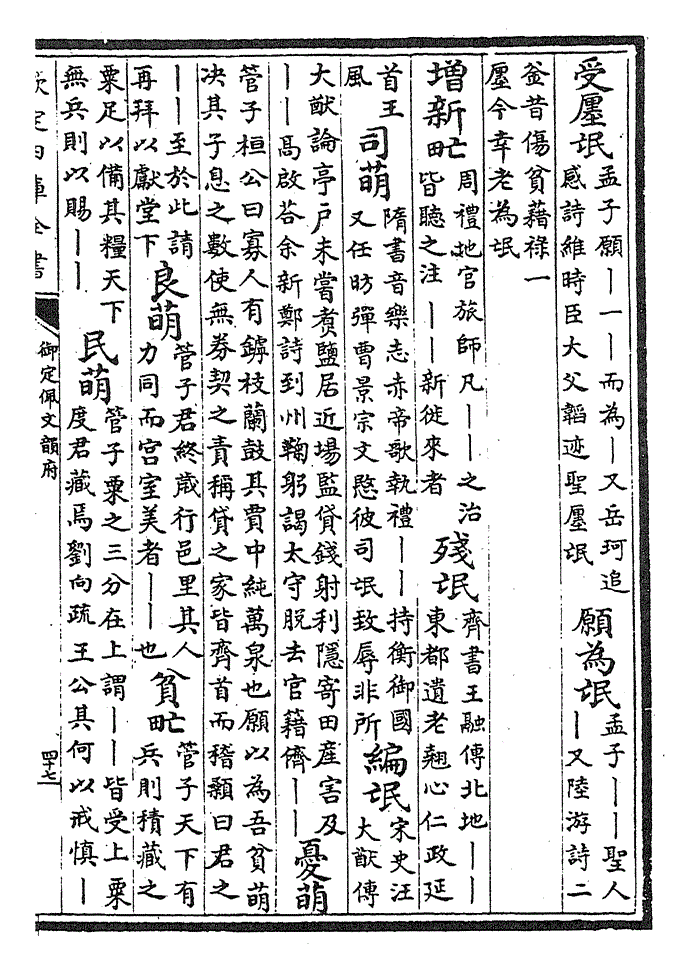 受廛氓
孟子願丨一丨而為丨又岳珂追
感詩維時臣大父韜迹聖廛氓
願為氓
孟子丨丨丨聖人
丨又陸游詩二
釜昔傷貧藉祿一
廛今幸老為氓
增新甿
周禮地官旅師凡丨丨之治
皆聽之注丨丨新徙來者
殘氓
齊書王融傳北地丨丨
東都遺老翹心仁政延
首王
風
司萌
隋書音樂志赤帝歌執禮丨丨持衡御國
又任昉彈曹景宗文愍彼司氓致辱非所
編氓
宋史汪
大猷傳
大猷論亭戶未嘗煑鹽居近場監貸錢射利隱寄田產害及
丨丨高啟荅余新鄭詩到州鞠躬謁太守脫去官籍儕丨丨
憂萌
管子桓公曰寡人有鏬枝蘭鼓其賈中純萬泉也願以為吾貧萌
決其子息之數使無券契之責稱貸之家皆齊首而稽顙曰君之
丨丨至於此請
再拜以獻堂下
良萌
管子君終歲行邑里其人
力同而宫室美者丨丨也
貧甿
管子天下有
兵則積藏之
粟足以備其糧天下
無兵則以賜丨丨
民萌
管子粟之三分在上謂丨丨皆受上粟
度君藏焉劉向疏王公其何以戒慎丨
欽定四庫全書
御定佩文韻府
四十七